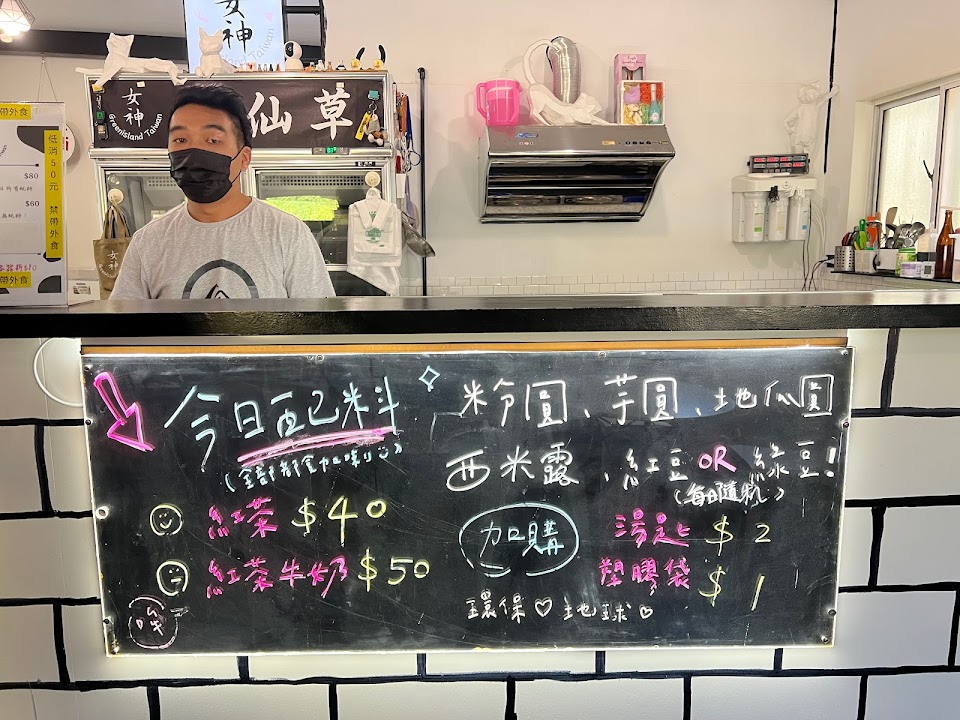 女神
女神
Greenisland Taiwan
仙草
帶外食
低消50元 禁帶外食
$80
$60
帶外食
女神
今日配料
(全部都會加唷!)
粉圓、芋圓、地瓜圓
西米露、紅豆 OR 綠豆!
(每日隨機)
紅茶 $40
紅茶牛奶 $50
加購
湯匙 $2
塑膠袋 $1
環保♡地球♡